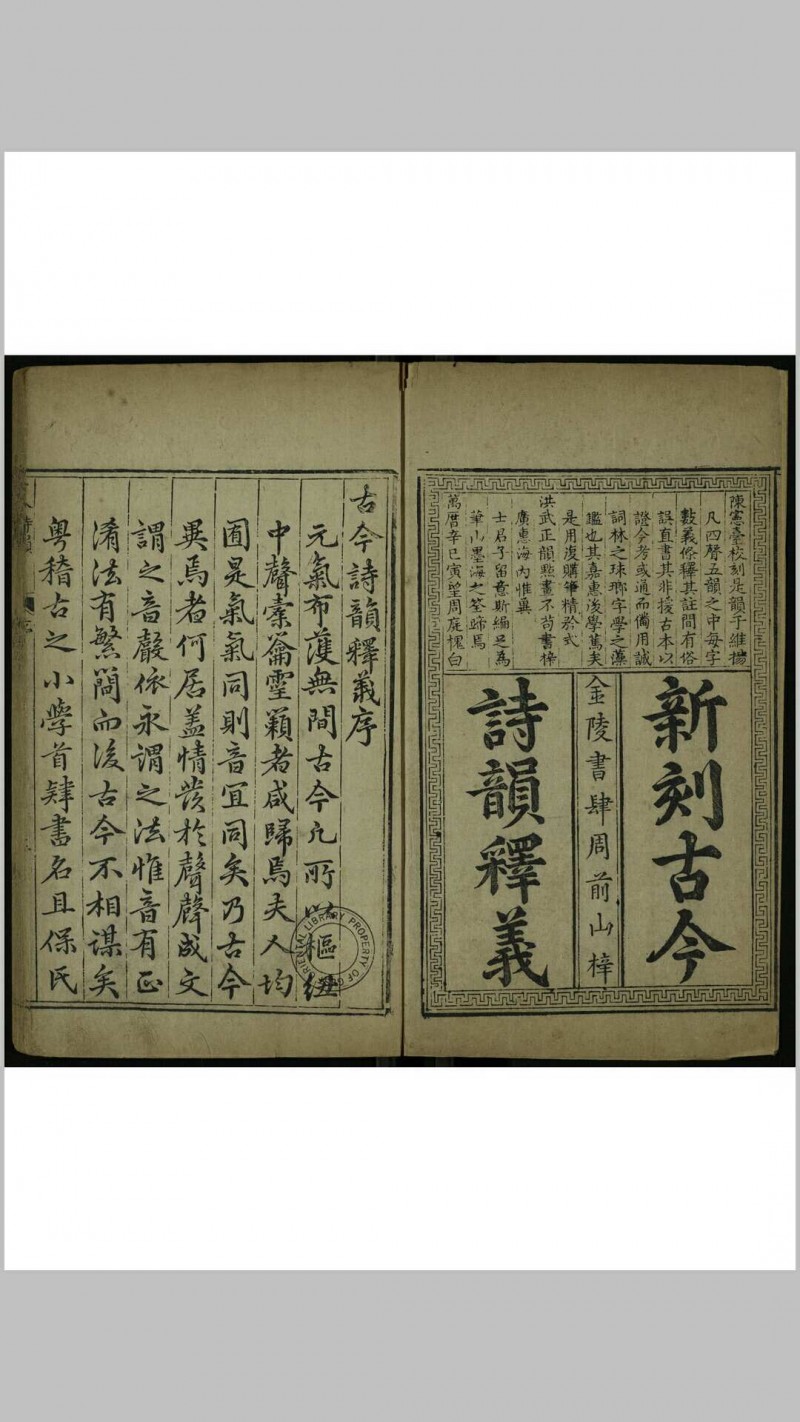 陳憲臺校刻是韻于維揚
凡四聲五韻之中每字
數義俻釋其註間有俗
誤直書其非援古本以
證今考或通而備用誠
詞林之球瑯字學之藻
鑑也其嘉惠後學篤矣
是用復購筆精於式
洪武正韻㸃畫不苟書梓
廣惠海内惟兾
士君子留意斯編足爲
筆山墨海之筌蹄焉
萬曆辛巳寅望周庭愧白
新刻古今
金陵書肆周前山梓
詩韻釋義
古今詩韻釋義序
元氣布濩無間古今凡所以樞紐
中聲橐籥靈籟者咸歸焉夫人均
囿是氣氣同則音宜同矣乃古今
異焉者何居盖情發於聲聲成文
謂之音聲依永謂之法惟音有正
淆法有繁簡而後古今不相謀矣
粤稽古之小學首肄書名且保民
LIBRARY PROPERTY OF